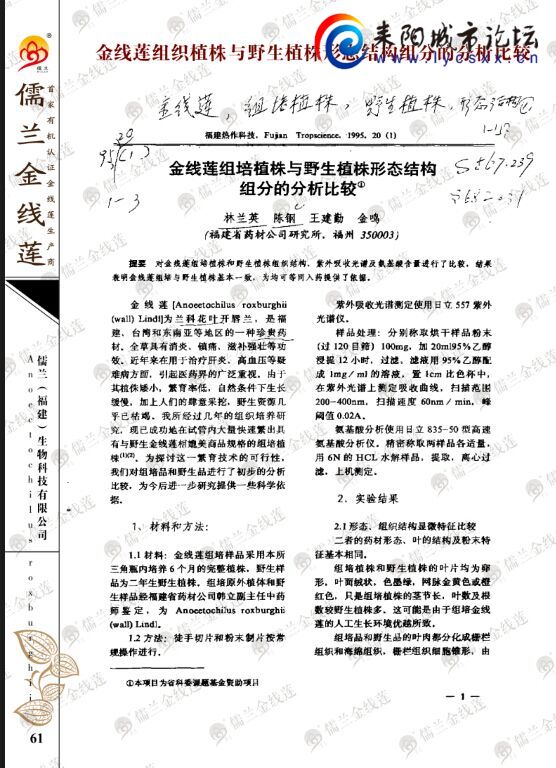 金线莲组织植株与野生植株形态结构组分的分析比较
耒阳城市论坛
www.lycsxx.com
儒兰
儒兰金线莲
首家有机认证金线莲生产商
儒兰(福建)生物科技有限公司
Anoectochilus roxburghii
金线莲,组培植株,野生植株,形态结构
福建热作科技. Fujian Tropscience. 1995. 20 (1)
1-3
S567.239
金线莲组培植株与野生植株形态结构
组分的分析比较①
林兰英 陈钢 王建勤 金鸣
(福建省药材公司研究所,福州 350003)
提要 对金线莲组培植株和野生植株组织结构,紫外吸收光谱及氨基酸含量进行了比较,结果
表明金线莲组培与野生植株基本一致,为均可等同入药提供了依据。
金线莲[Anoeetochilus roxburghii
(wall) Lindl]为兰科花叶开唇兰,是福
建、台湾和东南亚等地区的一种珍贵药
材。全草具有消炎、镇痛、滋补强壮等功
效。近年来在用于治疗肝炎、高血压等疑
难病方面,引起医药界的广泛重视。由于
其植株矮小,繁育率低,自然条件下生长
缓慢,加上人们的肆意采挖,野生资源几
乎已枯竭。我所经过几年的组织培养研
究,现已成功地在试管内大量快速繁出具
有与野生金线莲相媲美商品规格的组培植
株⁽¹⁾⁽²⁾。为探讨这一繁育技术的可行性,
我们对组培品和野生品进行了初步的分析
比较,为今后进一步研究提供一些科学依
据。
1、材料和方法:
1.1 材料:金线莲组培样品采用本所
三角瓶内培养 6 个月的完整植株,野生样
品为二年生野生植株。组培原外植体和野
生样品经福建省药材公司韩立副主任中药
师鉴定,为 Anoeetochilus roxburghii
(wall) Lindl。
1.2 方法:徒手切片和粉末制片按常
规操作进行。
①本项目为省科委课题基金资助项目
紫外吸收光谱测定使用日立 557 紫外
光谱仪。
样品处理:分别称取烘干样品粉末
(过 120 目筛) 100mg,加 20ml95%乙醇
浸提 12 小时,过滤。滤液用 95%乙醇配
成 1mg/ml 的溶液,置 1cm 比色杯中,
在紫外光谱上测定吸收曲线,扫描范围
200-400nm,扫描速度 60nm/min,峰
阈值 0.02A。
氨基酸分析使用日立 835-50 型高速
氨基酸分析仪。精密称取两样品各适量,
用 6N 的 HCL 水解样品,提取,离心过
滤,上机测定。
2、实验结果
2.1 形态、组织结构显微特征比较
二者的药材形态、叶的结构及粉末特
征基本相同。
组培植株和野生植株的叶片均为卵
形,叶面绒状,色墨绿,网脉金黄色或橙
红色,只是组培植株的茎节长,叶数及根
数较野生植株多。这可能是由于组培金线
莲的人工生长环境优越所致。
组培品和野生品的叶肉都分化成栅栏
组织和海绵组织,栅栏组织细胞锥形,由
— 1 —
61